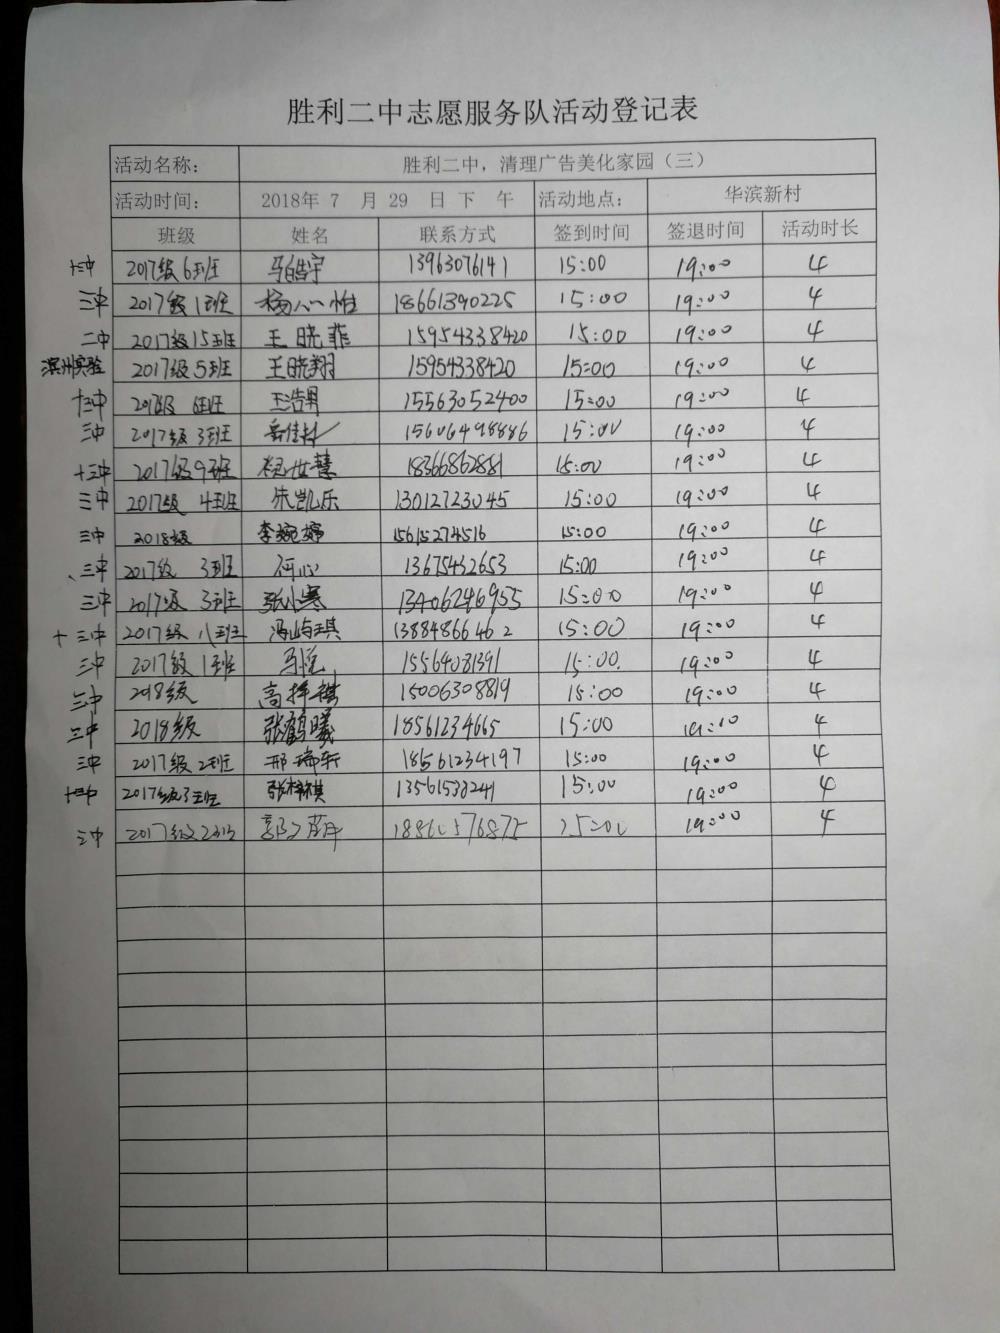 胜利二中志愿服务队活动登记表
活动名称: 胜利二中，清理广告美化家园（三）
活动时间: 2018年 7 月 29 日 下 午 活动地点: 华滨新村
班级 姓名 联系方式 签到时间 签退时间 活动时长
十三中 2017级6班 马皓宇 13963076141 15:00 19:00 4
三中 2017级1班 杨心惟 18661390225 15:00 19:00 4
二中 2017级15班 王晓菲 15954338420 15:00 19:00 4
滨州实验 2017级5班 王晓翔 15954338420 15:00 19:00 4
十三中 王浩男 15563052400 15:00 19:00 4
三中 2017级3班 15606498886 15:00 19:00 4
十三中 2017级9班 程女慧 18366862881 15:00 19:00 4
三中 2017级 4班 朱凯乐 13012723045 15:00 19:00 4
三中 2018级 李婉婷 15615274516 15:00 19:00 4
三中 2017级 3班 何心 13675432653 15:00 19:00 4
三中 2017级 3班 张小寒 13406246955 15:00 19:00 4
十三中 2017级八班 冯屿琪 13884866462 15:00 19:00 4
三中 2017级1班 马悦 15564081391 15:00. 19:00 4
三中 2018级 高梓祺 15006308819 15:00 19:00 4
三中 2018级 张鹤曦 18561234665 15:00 19:10 4
三中 2017级2班 邢瑞轩 18561234197 15:00 19:00 4
2017级3班 张梓祺 13561538241 15:00 19:00 4
三中 2017级 15:00 19:00 4